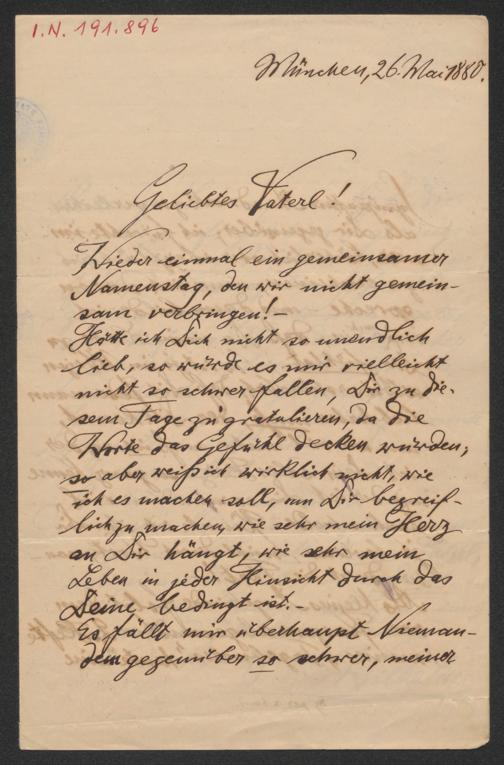 I.N. 191.896
München, 26. Mai 1880.
Geliebtes Vaterl!
Wieder einmal ein gemeinsamer
Namenstag, den wir nicht gemein-
sam verbringen! –
Hätte ich Dich nicht so unendlich
lieb, so würde es mir vielleicht
nicht so schwer fallen, Dir zu die-
sem Tage zu gratulieren, da die
Worte das Gefühl decken würden;
so aber weiß ich wirklich nicht, wie
ich es machen soll, um Dir begreif-
lich zu machen, wie sehr mein Herz
an Dir hängt, wie sehr mein
Leben in jeder Hinsicht durch das
Deine bedingt ist. –
Es fällt mir überhaupt Nieman-
dem gegenüber so schwer, meiner